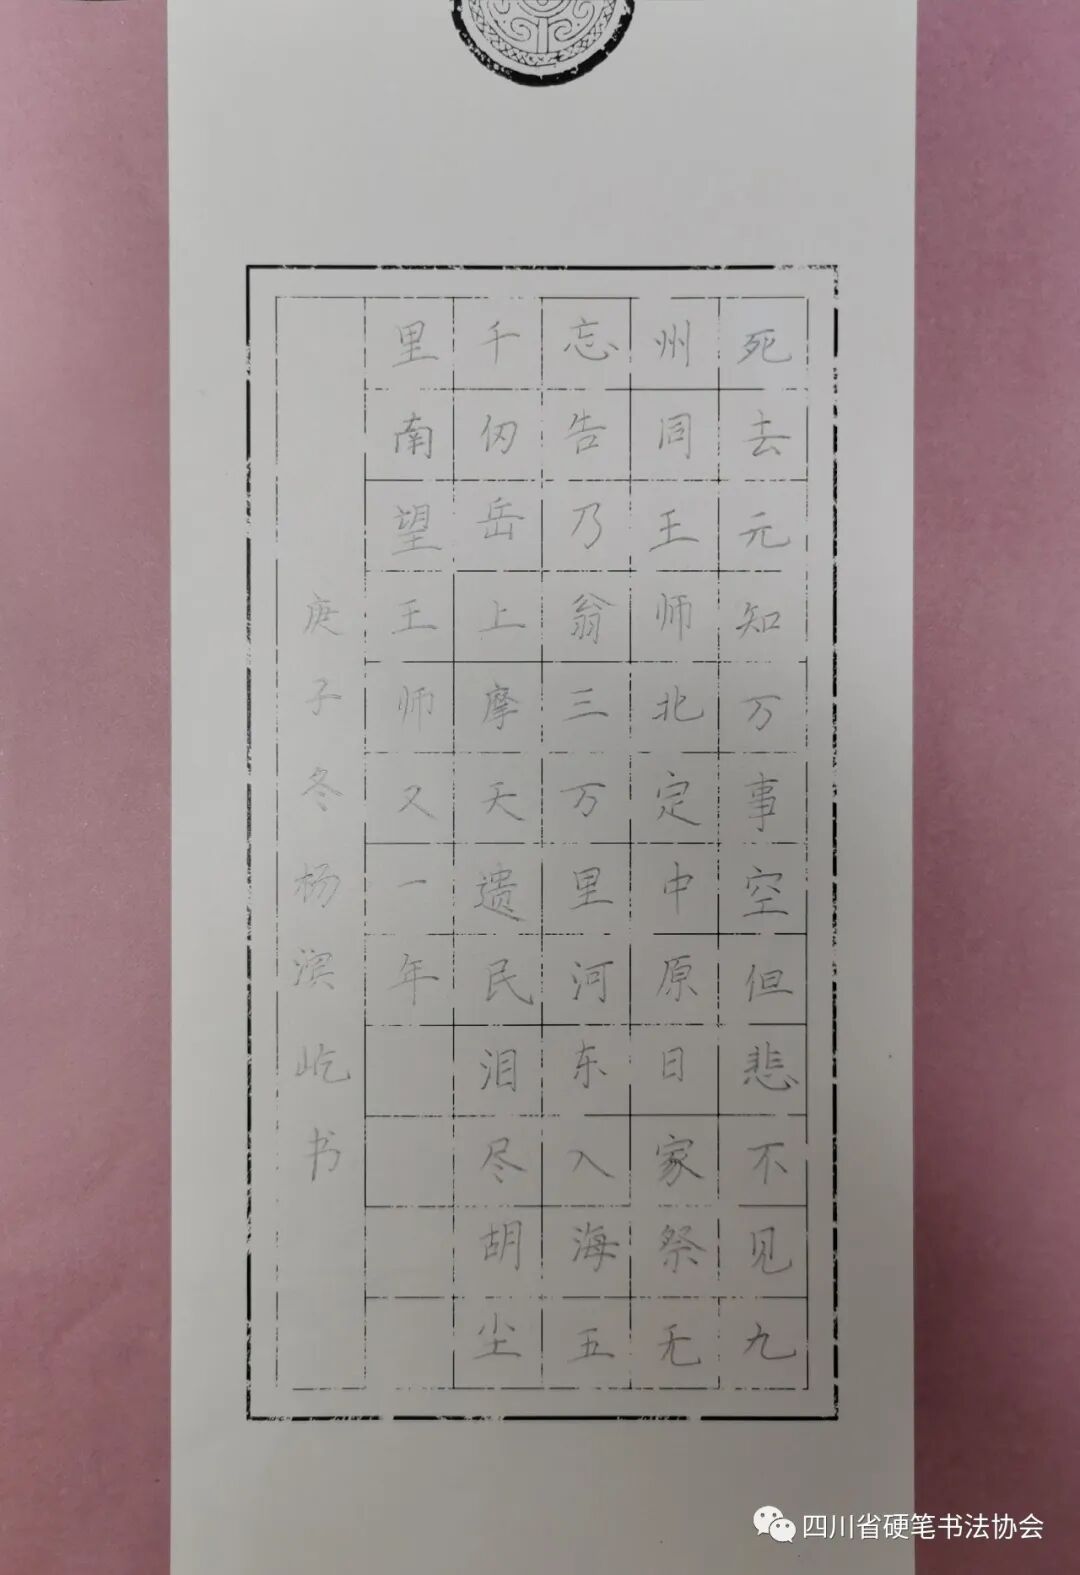 死去元知万事空但悲不见九
州同王师北定中原日家祭无
忘告乃翁三万里河东入海五
千仞岳上摩天遗民泪尽胡尘
里南望王师又一年
庚子冬杨滨屹书
四川省硬笔书法协会